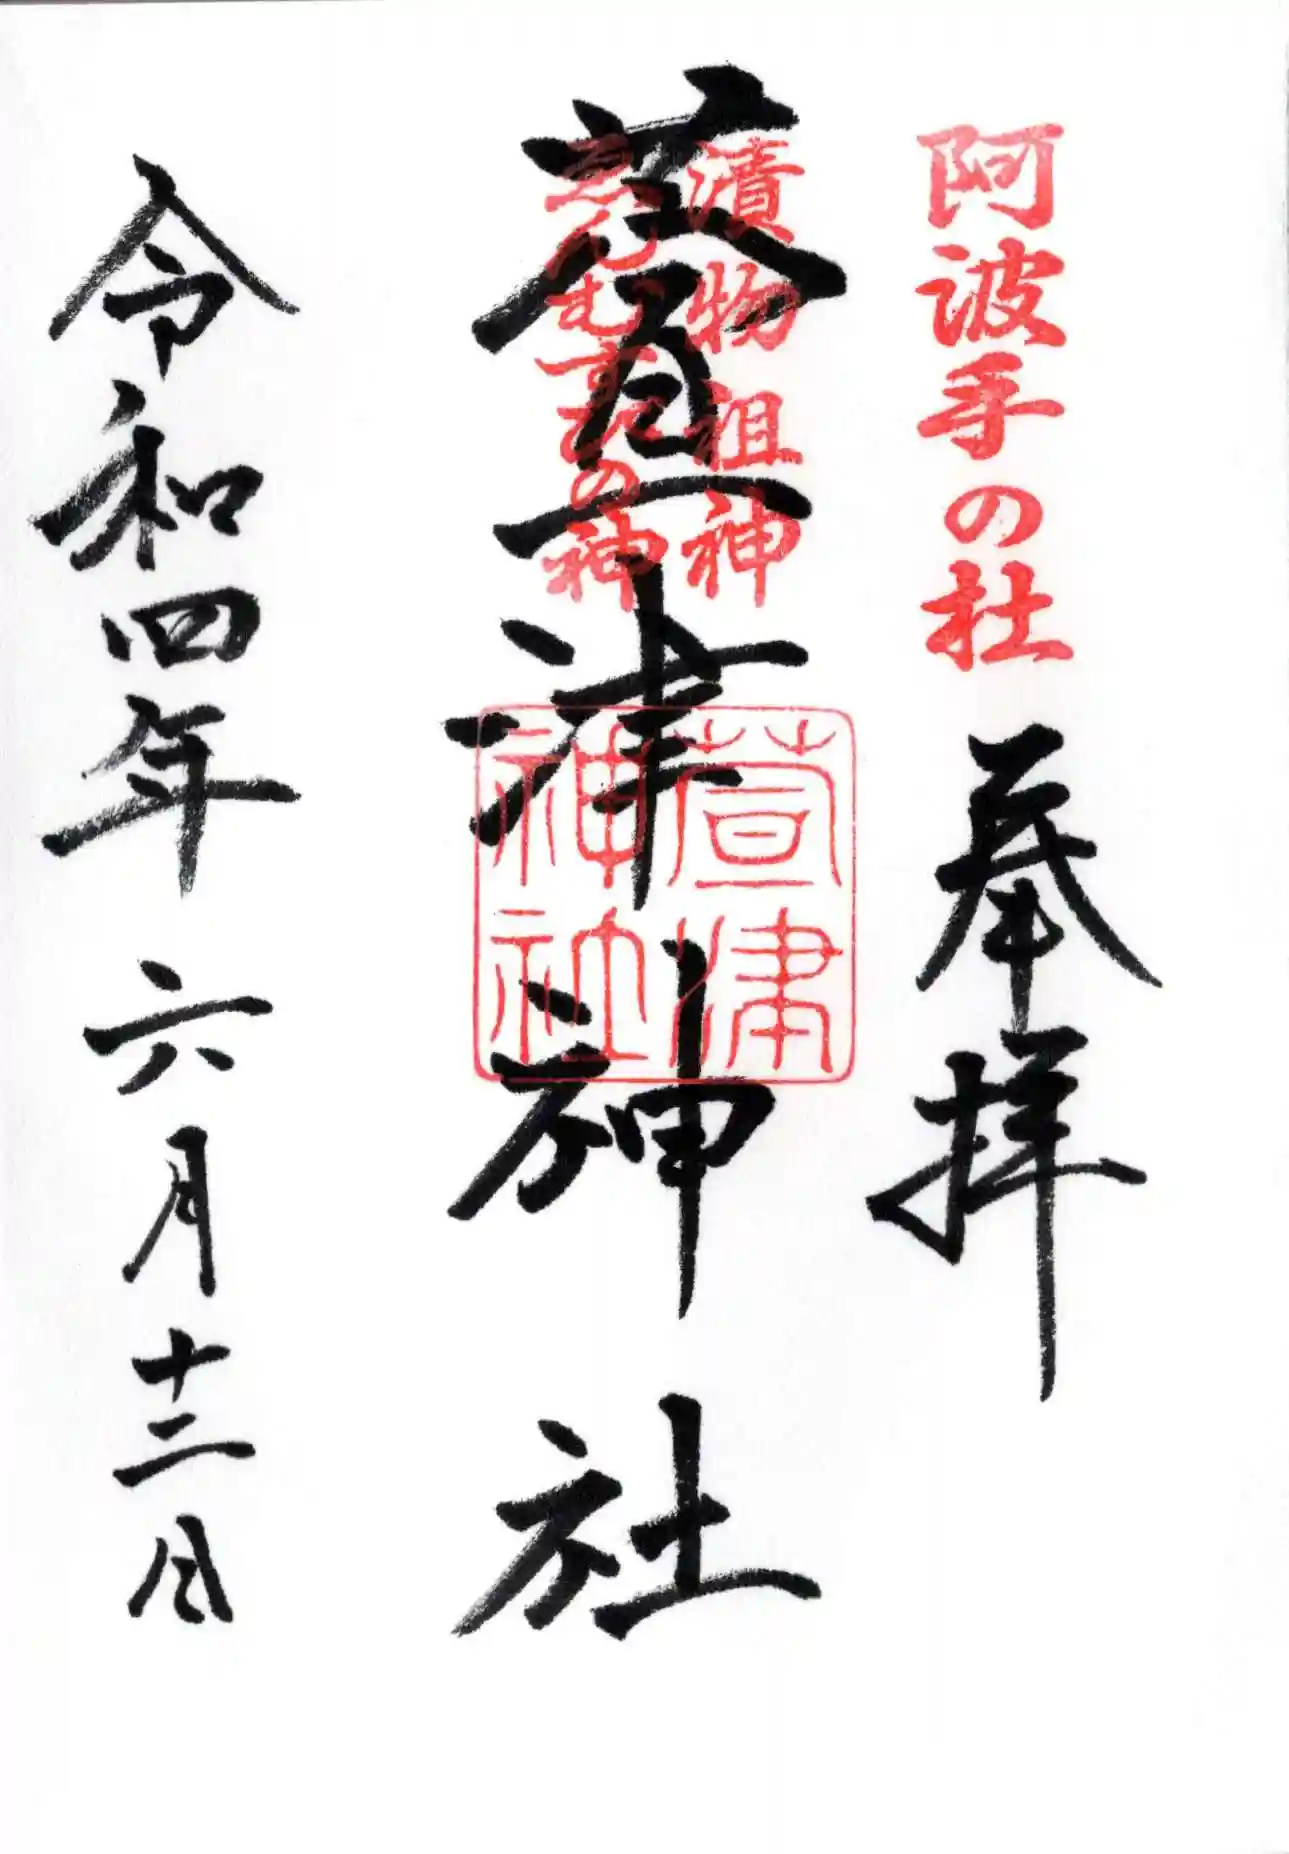 阿波手の社
奉拝
漬物祖神
えんむすびの神
萱津神社
萱津
神社
令和四年六月十二日